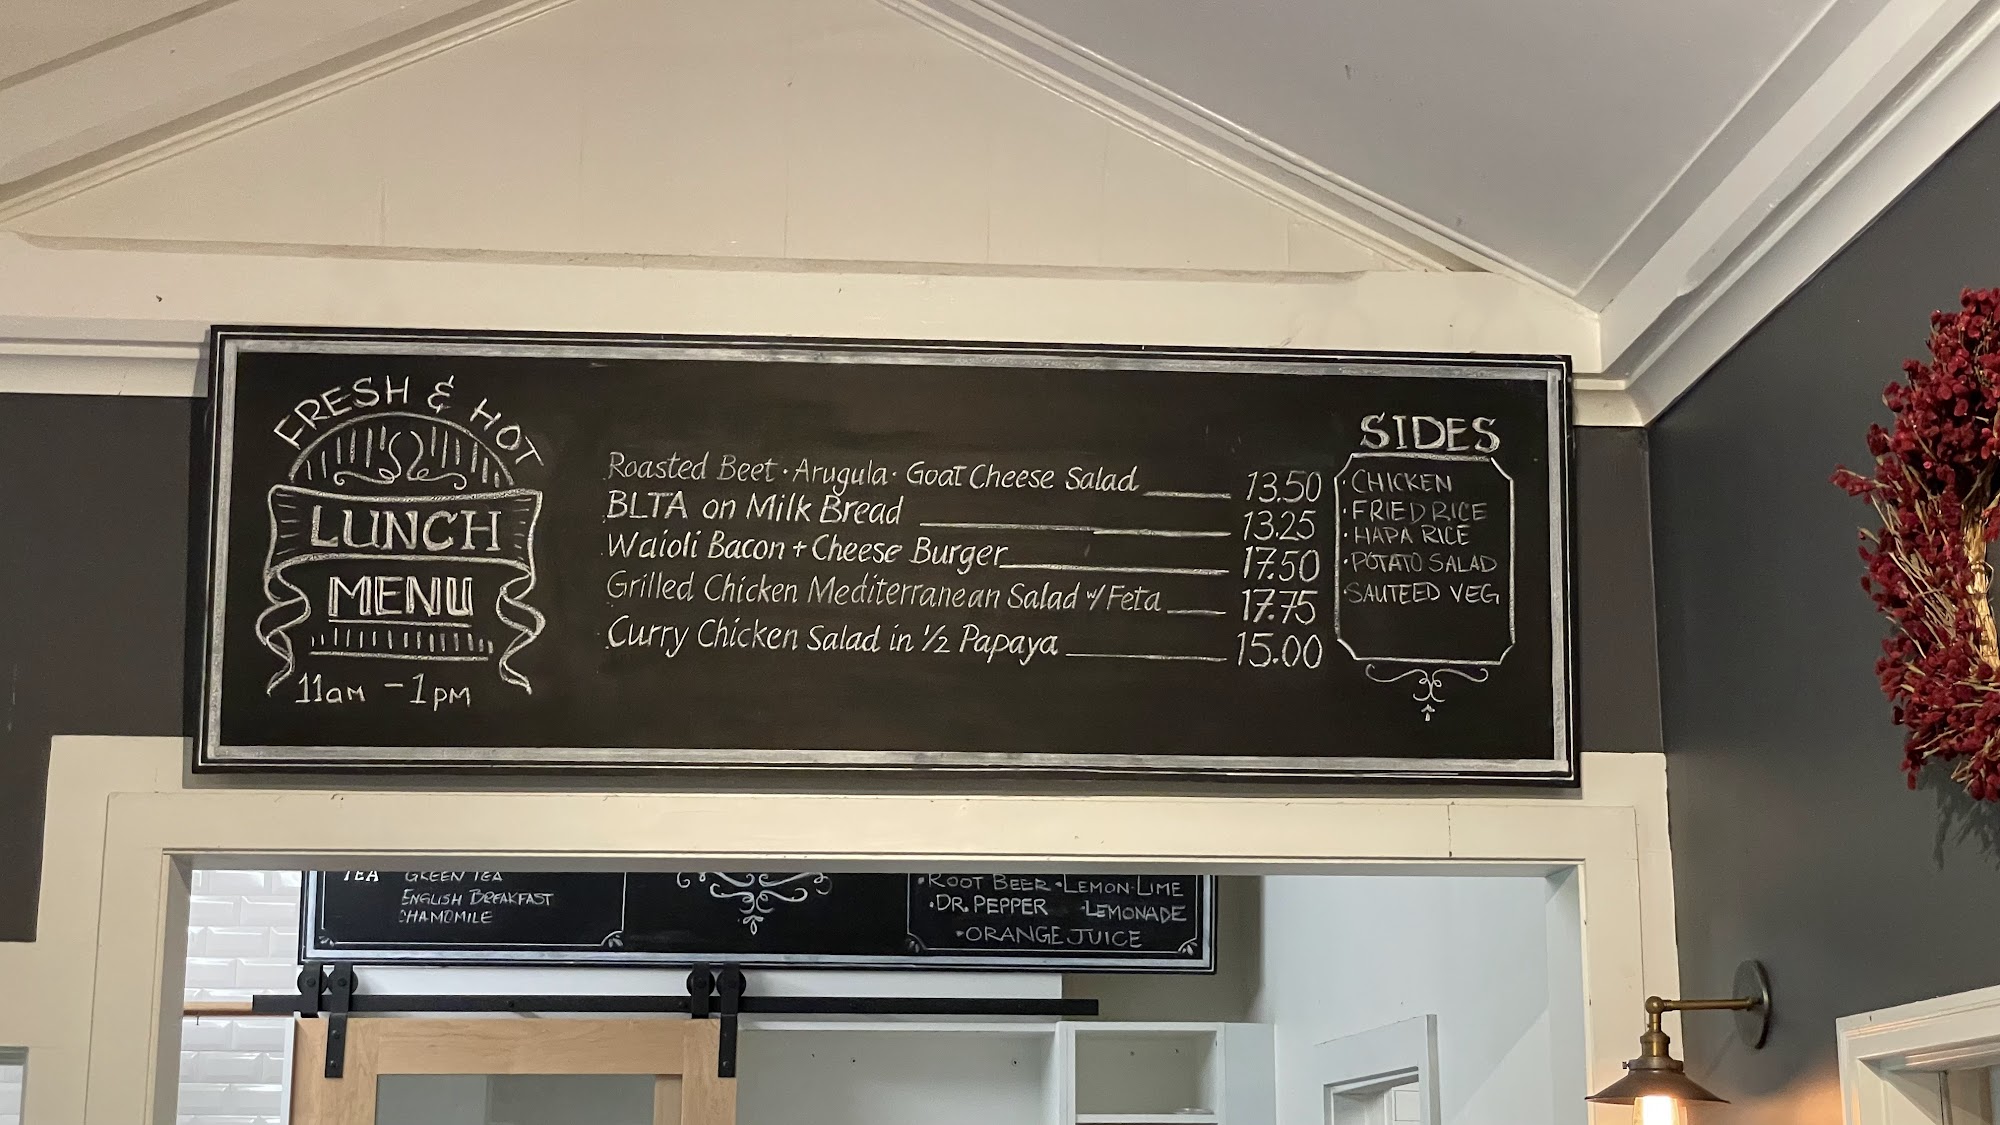 FRESH & HOT
LUNCH
MENU
11am - 1pm
Roasted Beet · Arugula · Goat Cheese Salad 13.50
BLTA on Milk Bread 13.25
Waioli Bacon + Cheese Burger 17.50
Grilled Chicken Mediterranean Salad w/ Feta 17.75
Curry Chicken Salad in 1/2 Papaya 15.00
SIDES
· CHICKEN
· FRIED RICE
· HAPA RICE
· POTATO SALAD
· SAUTEED VEG
TEA GREEN TEA
ENGLISH BREAKFAST
CHAMOMILE
· ROOT BEER · LEMON-LIME
· DR. PEPPER · LEMONADE
· ORANGE JUICE